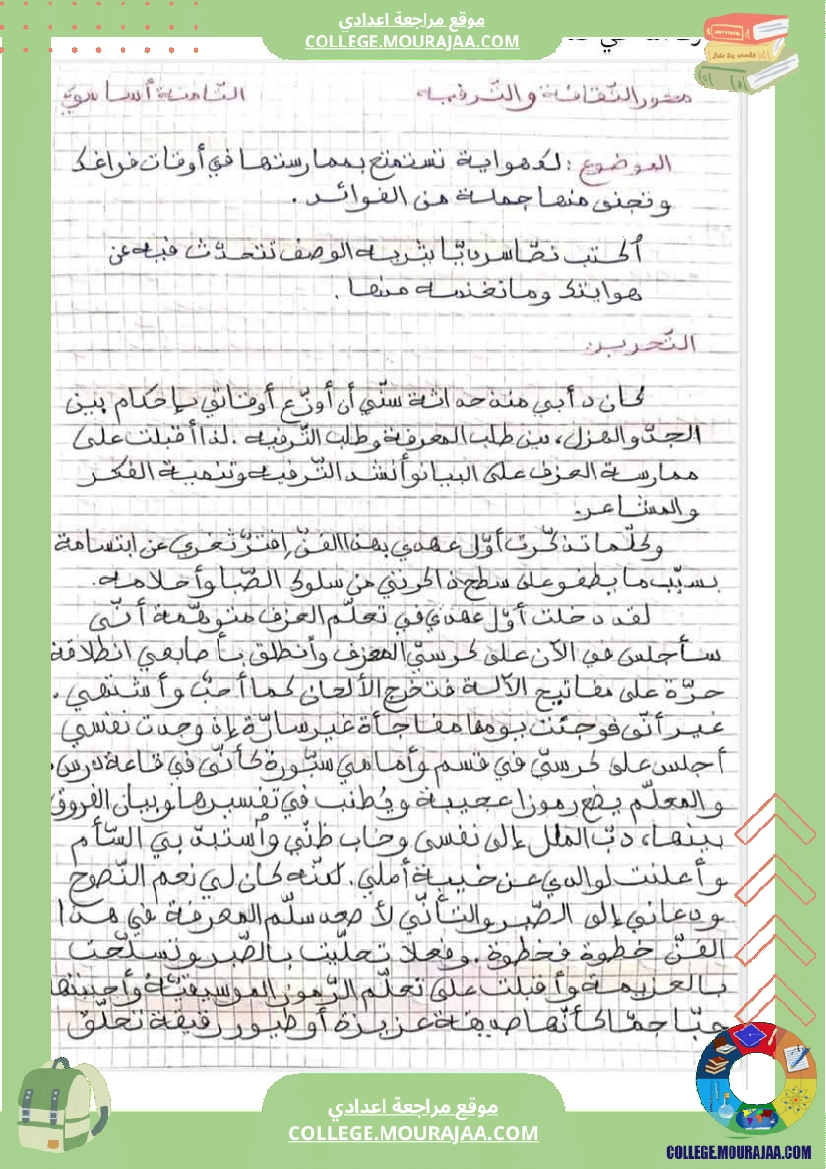 موقع مراجعة اعدادي
COLLEGE.MOURAJAA.COM
محور الثّقافة والتّرفيه
الثّامنة أساسي
الموضوع: لك هواية تستمتع بممارستها في أوقات فراغك
وتجني منها جملة من الفوائد.
أكتب نصّا سرديّا يثريه الوصف تتحدّث فيه عن
هوايتك وما تغنمه منها.
التّحرير:
كان دأبي منذ حداثة سنّي أن أوزّع أوقاتي بإحكام بين
الجدّ والهزل، بين طلب المعرفة وطلب التّرفيه. لذا أقبلت على
ممارسة العزف على البيانو أنشد التّرفيه وتنمية الفكر
والمشاعر.
وكلّما تذكّرت أوّل عهدي بهذا الفنّ إفترّ ثغري عن ابتسامة
بسبب ما يطفو على سطح ذاكرتي من سلوك الصّبا وأحلامه.
لقد دخلت أوّل عهدي في تعلّم العزف متوهّمة أنّي
سأجلس في الآن على كرسيّ المعزف وأنطلق بأصابعي انطلاقة
حرّة على مفاتيح الآلة فتخرج الألحان كما أحبّ وأشتهي.
غير أنّي فوجئت يومها مفاجأة غير سارّة إذ وجدت نفسي
أجلس على كرسيّ في قسم وأمامي سبّورة كأنّي في قاعة درس.
والمعلّم يضع رموزا عجيبة ويُطنب في تفسيرها وبيان الفروق
بينها، دبّ الملل إلى نفسي وخاب ظنّي وٱستبدّ بي السّأم
وأعلنت لوالدي عن خيبة أملي. لكنّه كان لي نعم النّصوح
ودعاني إلى الصّبر والتأنّي لأصعد سلّم المعرفة في هذا
الفنّ خطوة فخطوة. وفعلا تحلّيت بالصّبر وتسلّحت
بالعزيمة وأقبلت على تعلّم الرّموز الموسيقيّة وأحببتها
حبّا جمّا كأنّها صديقة عزيزة أو طيور رقيقة تحلّق
موقع مراجعة اعدادي
COLLEGE.MOURAJAA.COM
COLLEGE.MOURAJAA.COM